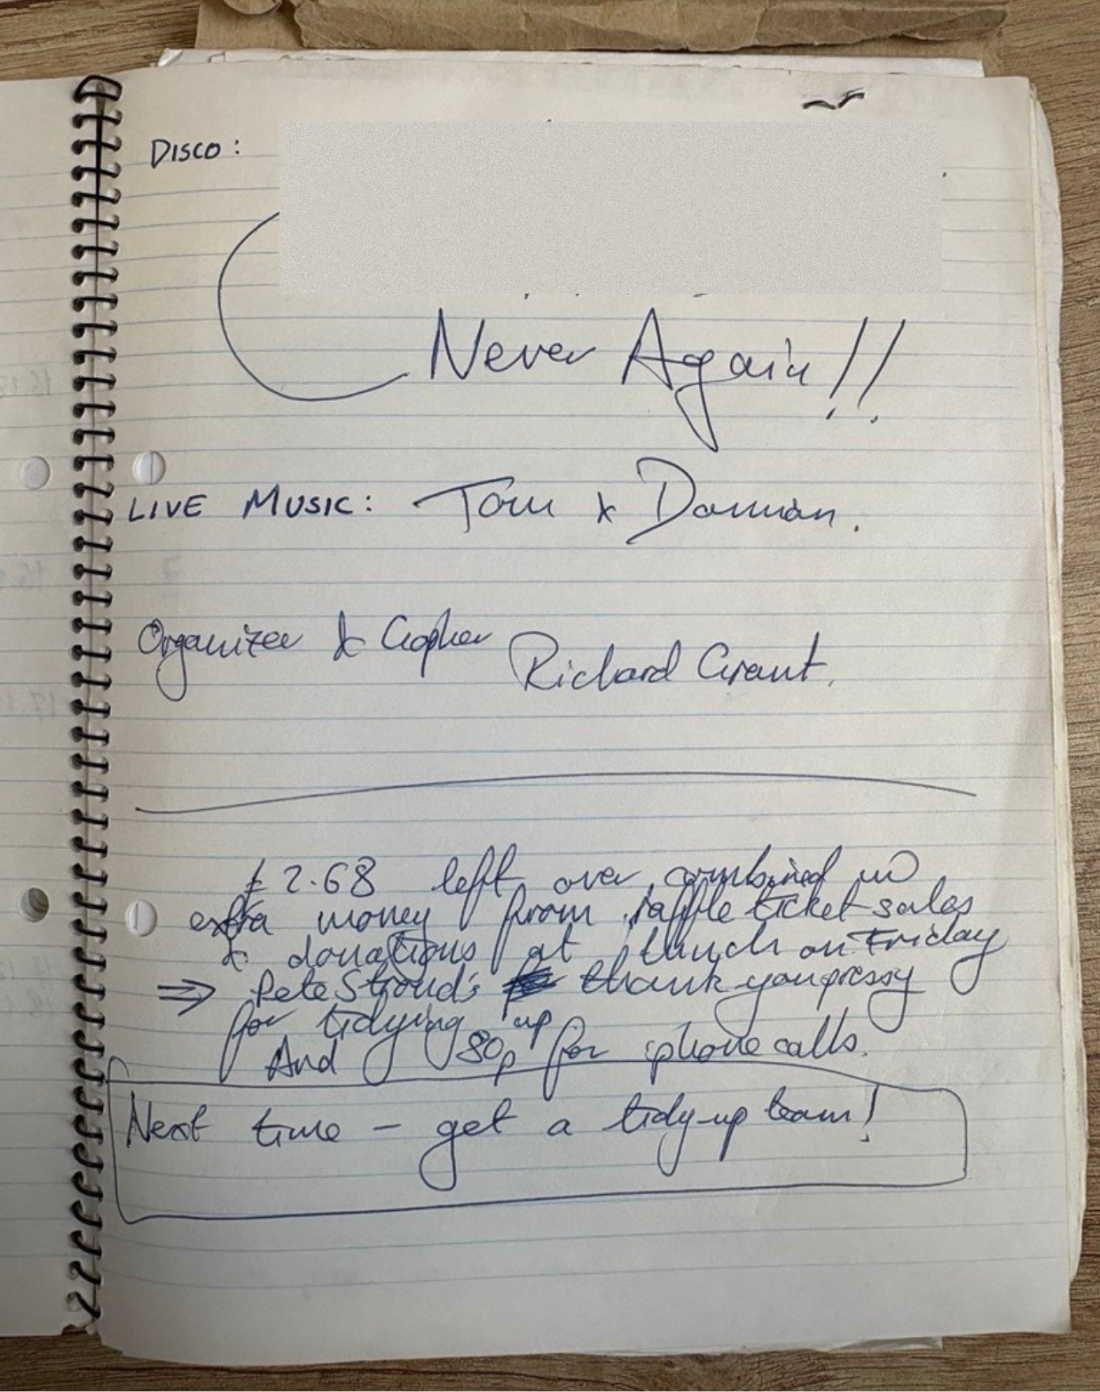 DISCO:
Never Again!!
LIVE MUSIC: Tom & Damian.
Organizer & Gopher
Richard Grant.
£2.68 left over, combined w
extra money from raffle ticket sales
& donations at lunch on Friday
⇒ Pete Stroud's thank you
for tidying up
And 80p for phone calls.
Next time – get a tidy-up team!